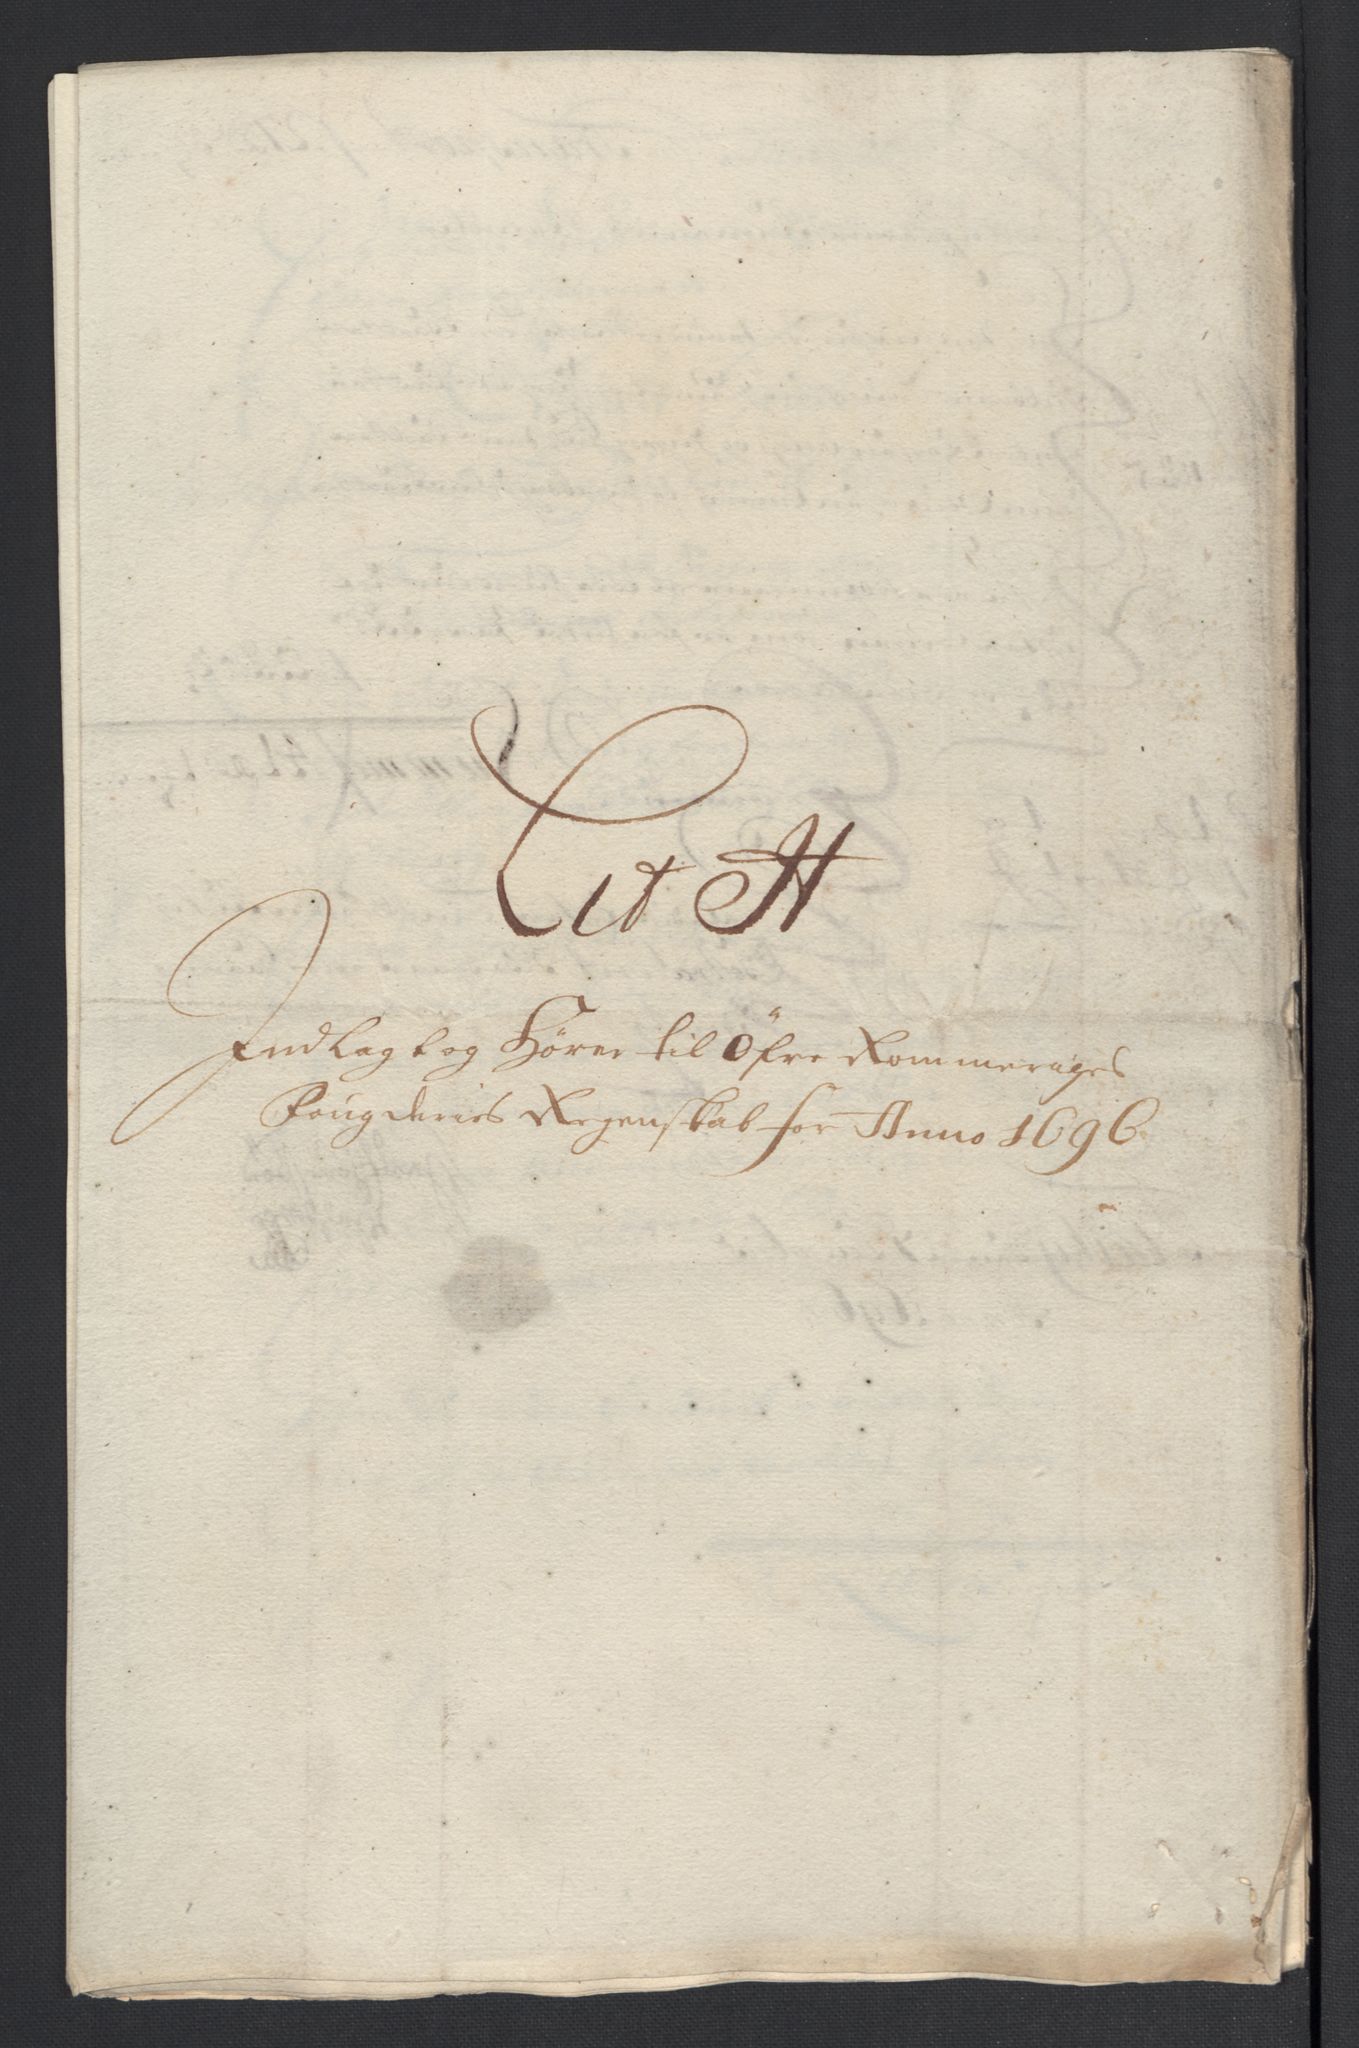 Lit H
Indlagt og Hörer til Öfre Rommeriges
Fougderies Regenskab for Anno 1696